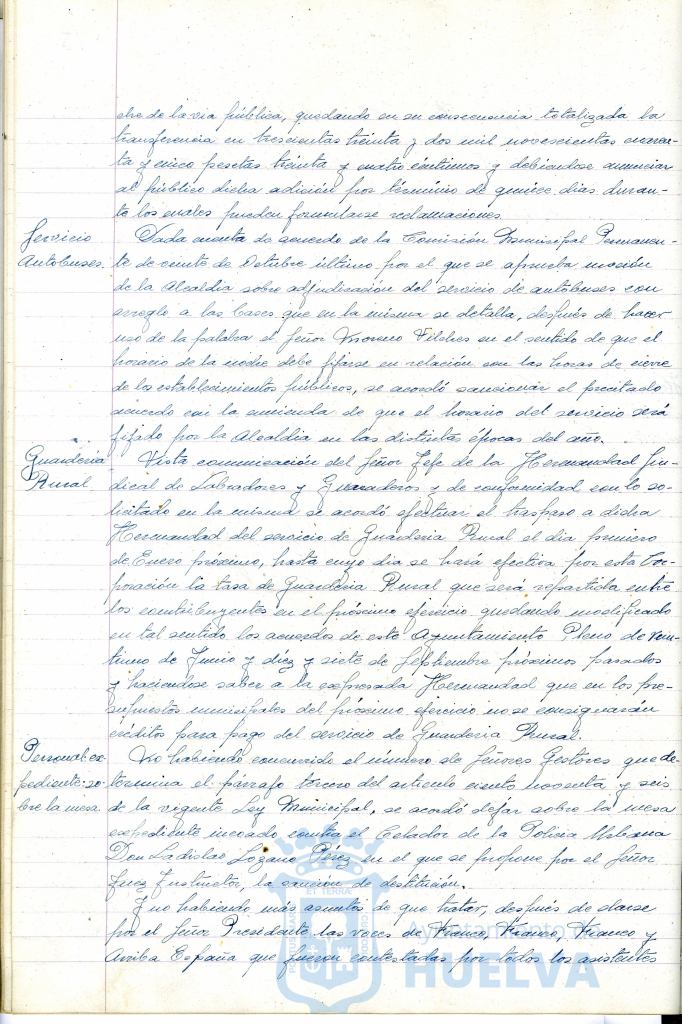 dro de la via pública, quedando en su consecuencia totalizada la
transferencia en trescientas treinta y dos mil novescientas cuaren-
ta y cinco pesetas treinta y cuatro céntimos y debiendose anunciar
al público dicha adición por término de quince dias duran-
te los cuales pueden formularse reclamaciones.
Servicio
Autobuses.
Dada cuenta de acuerdo de la Comisión Municipal Permanen-
te de veinte de Octubre último por el que se aprueba moción
de la Alcaldia sobre adjudicación del servicio de autobuses con
arreglo a las bases que en la misma se detalla, después de hacer
uso de la palabra el Señor Moreno Vilches en el sentido de que el
horario de la noche debe fijarse en relación con las horas de cierre
de los establecimientos públicos, se acordó sancionar el precitado
acuerdo con la enmienda de que el horario del servicio será
fijado por la Alcaldia en las distintas épocas del año.
Guarderia
Rural
Vista comunicación del Señor Jefe de la Hermandad Sin-
dical de Labradores y Ganaderos y de conformidad con lo so-
licitado en la misma se acordó efectuar el traspaso a dicha
Hermandad del servicio de Guarderia Rural el dia primero
de Enero próximo, hasta cuyo dia se hará efectiva por esta Cor-
poración la tasa de Guarderia Rural que será repartida entre
los contribuyentes en el próximo ejercicio quedando modificado
en tal sentido los acuerdos de este Ayuntamiento Pleno de vein-
tiuno de Junio y diez y siete de Septiembre próximos pasados
y haciendose saber a la expresada Hermandad que en los pre-
supuestos municipales del próximo ejercicio no se consignarán
créditos para pago del servicio de Guarderia Rural.
Personal ex-
pediente so-
bre la mesa.
No habiendo concurrido el número de Señores Gestores que de-
termina el párrafo tercero del articulo ciento noventa y seis
de la vigente Ley Municipal, se acordó dejar sobre la mesa
expediente incoado contra el Celador de la Policia Urbana
Don Ladislao Lozano Pérez en el que se propone por el Señor
Juez Instructor, la sanción de destitución.
Y no habiendo más asuntos de que tratar, después de darse
por el Señor Presidente las voces de Franco, Franco, Franco y
Arriba España que fueron contestadas por todos los asistentes
Ayuntamiento de
HUELVA